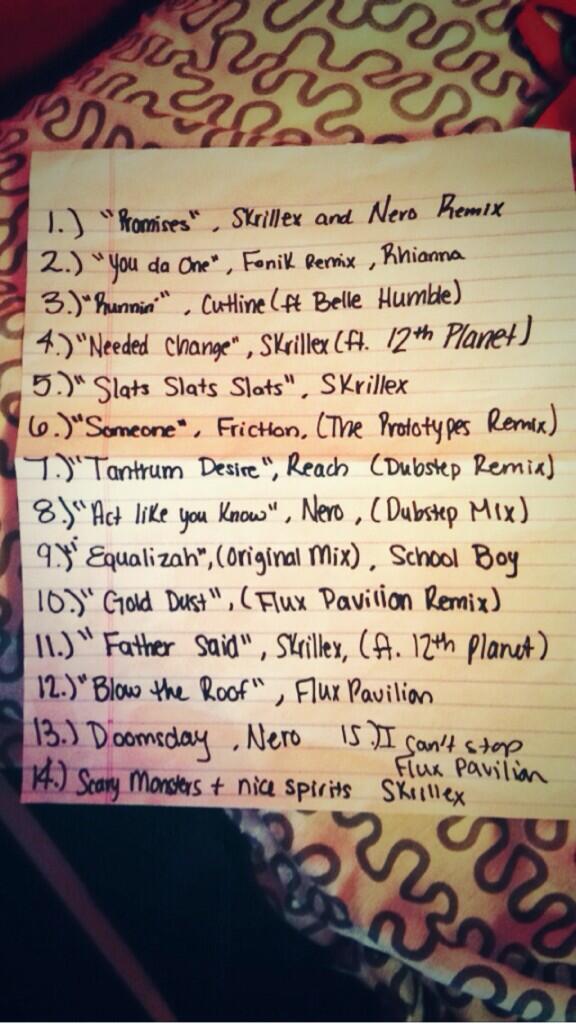 1.) "Promises", Skrillex and Nero Remix
2.) "You da One", Fenik Remix, Rhianna
3.) "Runnin'", Cutline (ft Belle Humble)
4.) "Needed Change", Skrillex (ft. 12th Planet)
5.) "Slats Slats Slats", Skrillex
6.) "Someone", Friction, (The Prototypes Remix)
7.) "Tantrum Desire", Reach (Dubstep Remix)
8.) "Act like you Know", Nero, (Dubstep Mix)
9.) "Equalizah", (Original Mix), School Boy
10.) "Gold Dust", (Flux Pavilion Remix)
11.) "Father Said", Skrillex, (ft. 12th Planet)
12.) "Blow the Roof", Flux Pavilion
13.) Doomsday, Nero 15.) I can't stop
Flux Pavilion
14.) Scary Monsters + nice spirits Skrillex